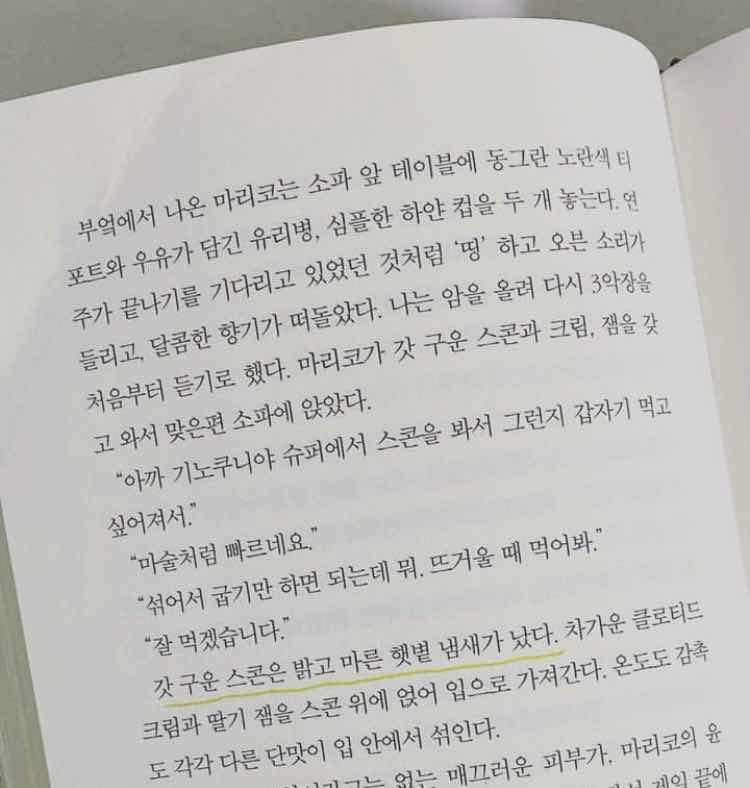 부엌에서 나온 마리코는 소파 앞 테이블에 동그란 노란색 티
포트와 우유가 담긴 유리병, 심플한 하얀 컵을 두 개 놓는다. 연
주가 끝나기를 기다리고 있었던 것처럼 ‘띵’ 하고 오븐 소리가
들리고, 달콤한 향기가 떠돌았다. 나는 암을 올려 다시 3악장을
처음부터 듣기로 했다. 마리코가 갓 구운 스콘과 크림, 잼을 갖
고 와서 맞은편 소파에 앉았다.
“아까 기노쿠니야 슈퍼에서 스콘을 봐서 그런지 갑자기 먹고
싶어져서.”
“마술처럼 빠르네요.”
“섞어서 굽기만 하면 되는데 뭐. 뜨거울 때 먹어봐.”
“잘 먹겠습니다.”
갓 구운 스콘은 밝고 마른 햇볕 냄새가 났다. 차가운 클로티드
크림과 딸기 잼을 스콘 위에 얹어 입으로 가져간다. 온도도 감촉
도 각각 다른 단맛이 입 안에서 섞인다.
없는 매끄러운 피부가, 마리코의 윤
제일 끝에